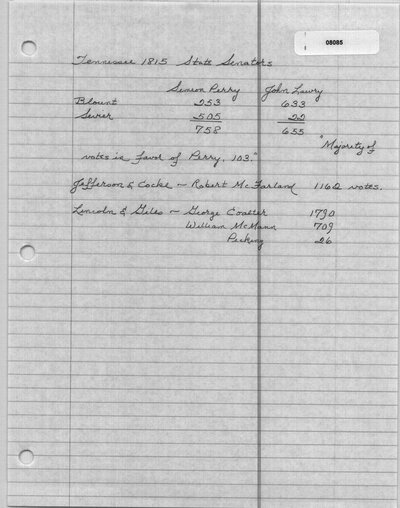 08085
Tennessee 1815 State Senators
Simeon Perry John Lowry
Blount 253 633
Sevier 505 22
758 655 "Majority of
votes in favor of Perry, 103."
Jefferson & Cocke ~ Robert McFarland 1162 votes.
Lincoln & Giles ~ George Coalter 1790
William McMann 709
Pecking 26